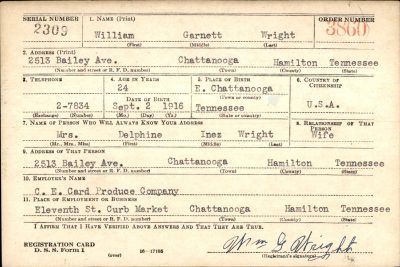 SERIAL NUMBER 1. NAME (Print) ORDER NUMBER
2309 William Garnett Wright 3860
(First) (Middle) (Last)
2. ADDRESS (Print)
2513 Bailey Ave. Chattanooga Hamilton Tennessee
(Number and street or R. F. D. number) (Town) (County) (State)
3. TELEPHONE 4. AGE IN YEARS 5. PLACE OF BIRTH 6. COUNTRY OF CITIZENSHIP
24 E. Chattanooga
DATE OF BIRTH (Town or county)
2-7834 Sept. 2 1916 Tennessee U.S.A.
(Exchange) (Number) (Mo.) (Day) (Yr.) (State or country)
7. NAME OF PERSON WHO WILL ALWAYS KNOW YOUR ADDRESS 8. RELATIONSHIP OF THAT PERSON
Mrs. Delphine Inez Wright Wife
(Mr., Mrs., Miss) (First) (Middle) (Last)
9. ADDRESS OF THAT PERSON
2513 Bailey Ave. Chattanooga Hamilton Tennessee
(Number and street or R. F. D. number) (Town) (County) (State)
10. EMPLOYER'S NAME
C. E. Card Produce Company
11. PLACE OF EMPLOYMENT OR BUSINESS
Eleventh St. Curb Market Chattanooga Hamilton Tennessee
(Number and street or R. F. D. number) (Town) (County) (State)
I AFFIRM THAT I HAVE VERIFIED ABOVE ANSWERS AND THAT THEY ARE TRUE.
REGISTRATION CARD
D. S. S. Form 1 (over) 16-17105 Wm G Wright
(Registrant's signature)